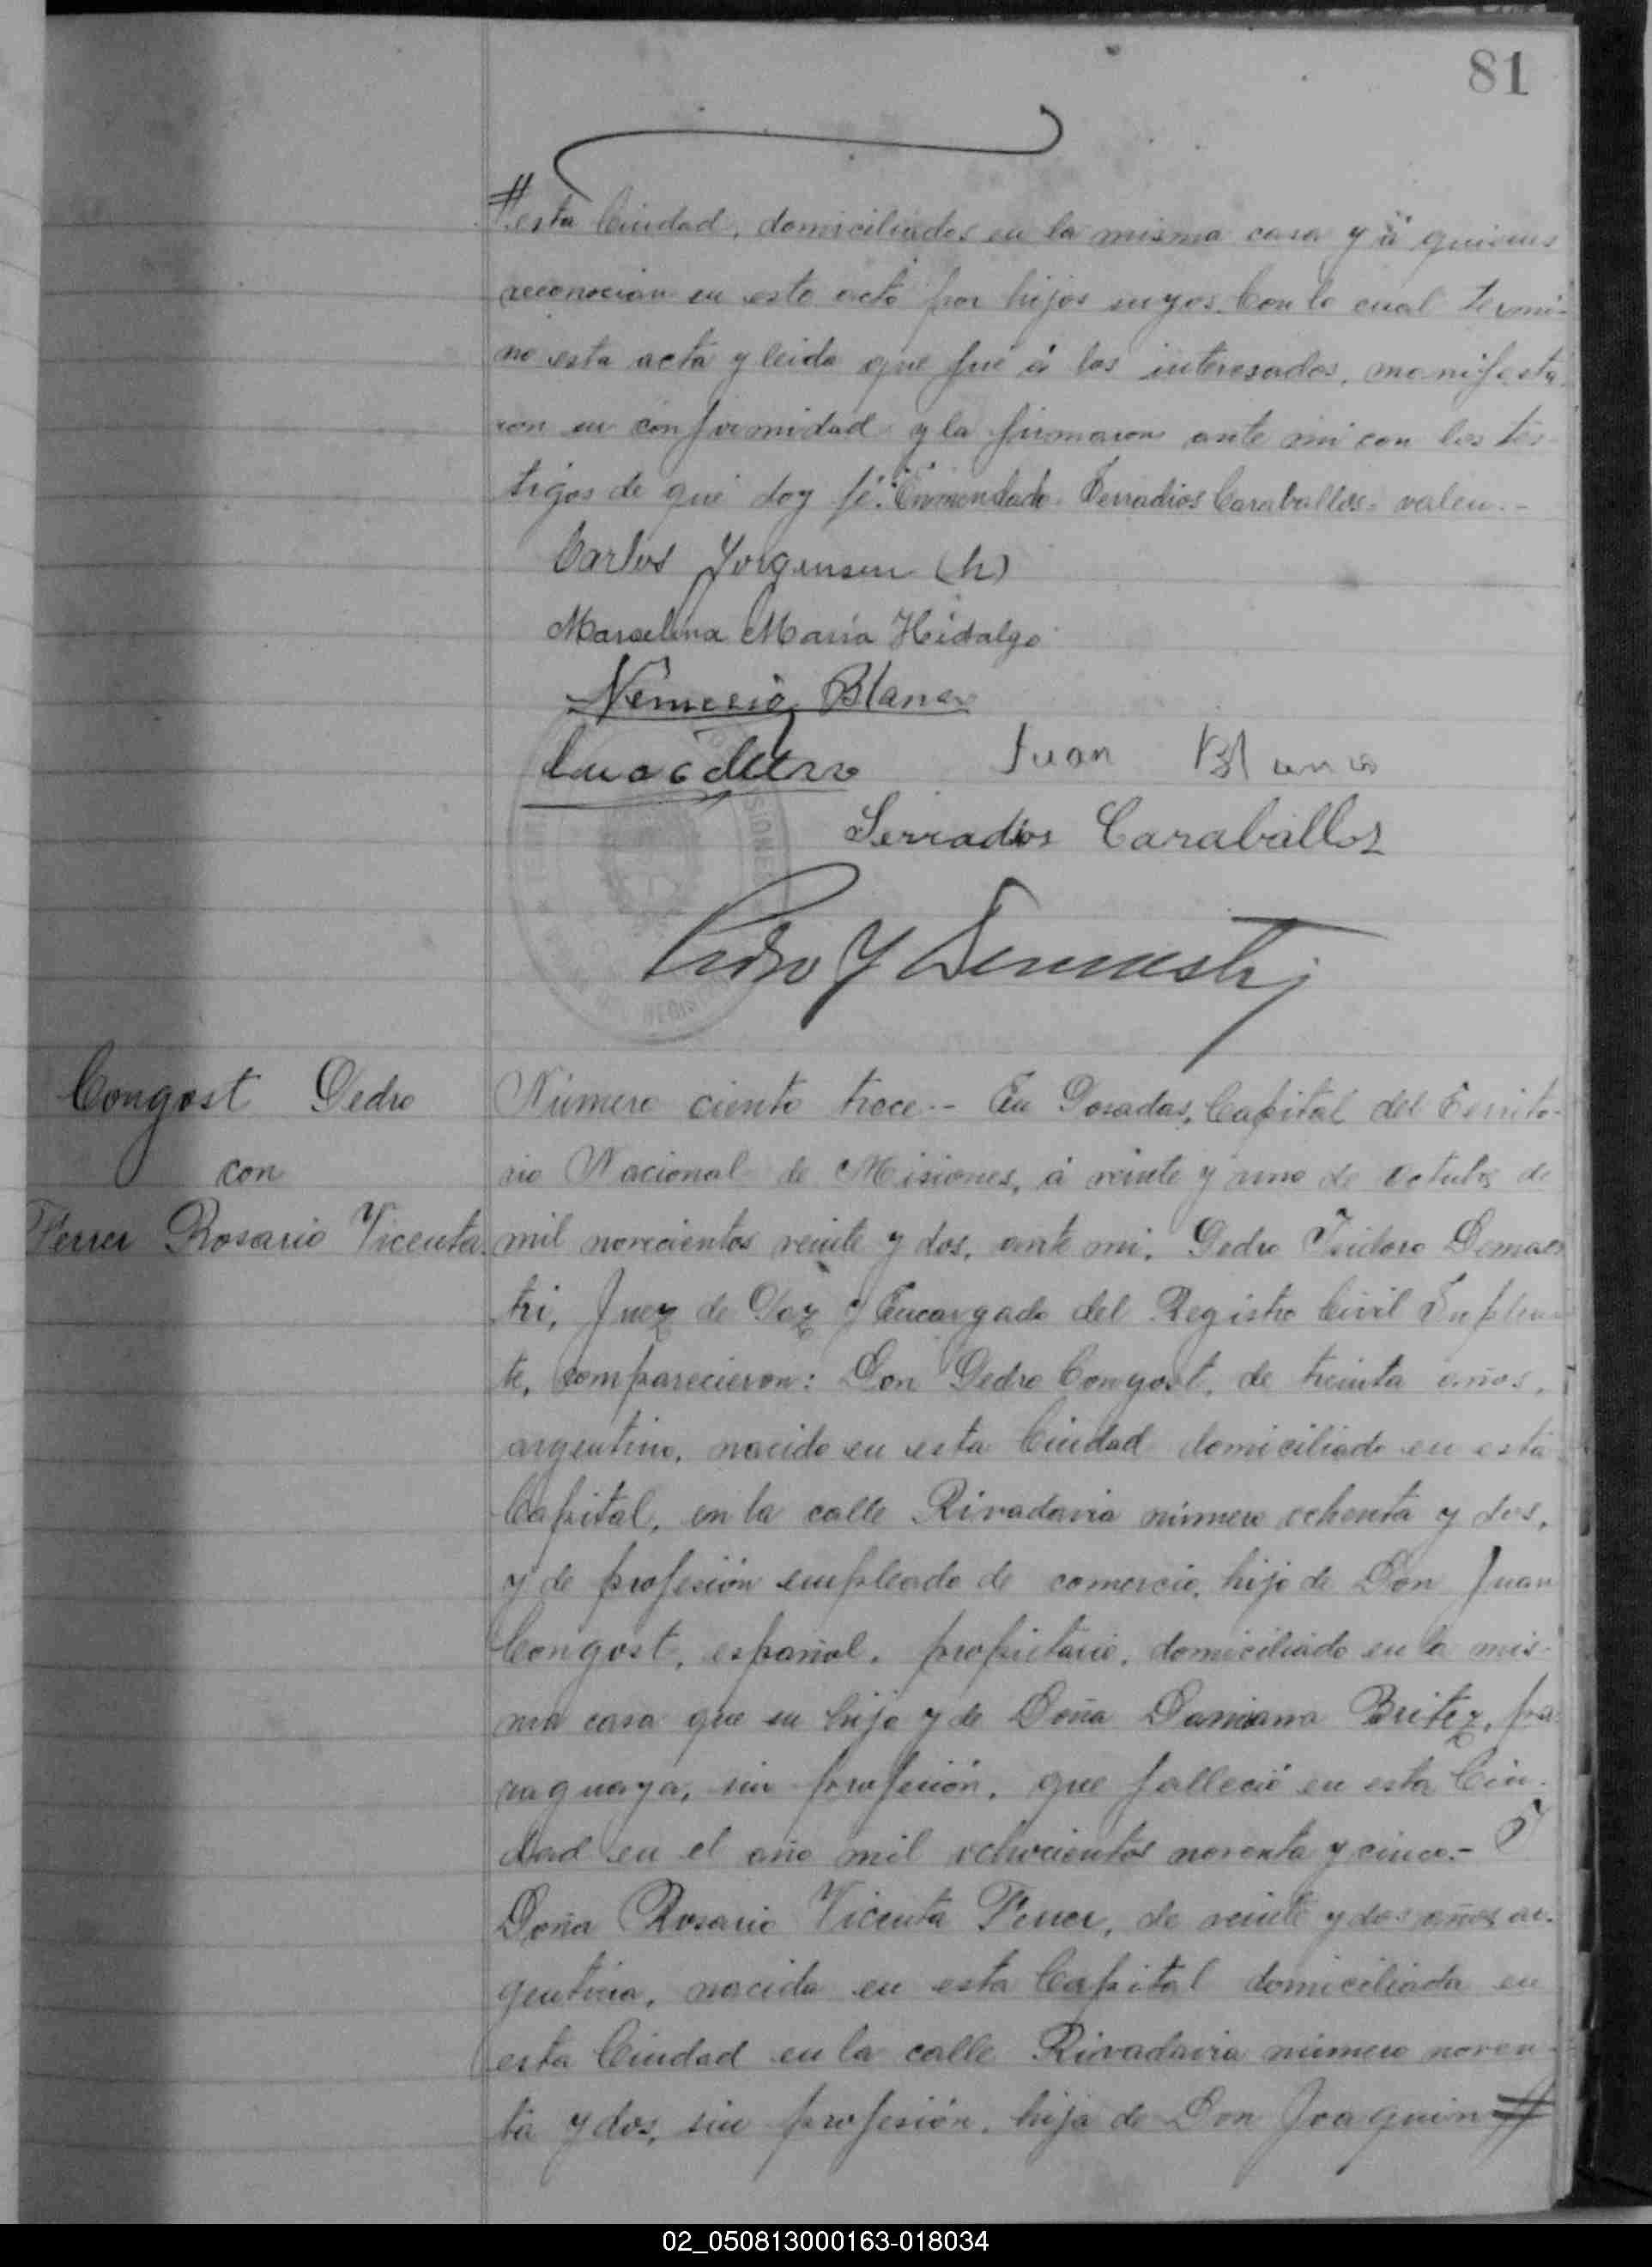 81
esta Ciudad, domiciliados en la misma casa y á quienes
reconocian en este acto por hijos suyos. Con lo cual termi-
no esta acta y leida que fué á los interesados, manifesta-
ron su conformidad y la firmaron ante mi con los tes-
tigos de que doy fé. Enmendado. Serradios Caraballos = valen.-
Carlos Jorgensen (h)
Marcelina Maria Hidalgo
Nemesio Blanco
Juan Blanco
Serradios Caraballos
Pedro Y Demaestri
Congost Pedro
con
Ferrer Rosario Vicenta.
Número ciento trece.- En Posadas, Capital del Territo-
rio Nacional de Misiones, á veinte y uno de octubre de
mil novecientos veinte y dos, ante mi, Pedro Isidoro Demaes
tri, Juez de Paz y Encargado del Registro Civil Suplen
te, comparecieron: Don Pedro Congost, de treinta años,
argentino, nacido en esta Ciudad domiciliado en esta
Capital, en la calle Rivadavia número ochenta y dos,
y de profesión empleado de comercio, hijo de Don Juan
Congost, español, propietario, domiciliado en la mis-
ma casa que su hijo y de Doña Damiana Britez, pa-
raguaya, sin profesión, que falleció en esta Ciu-
dad en el año mil ochocientos noventa y cinco.- Y
Doña Rosario Vicenta Ferrer, de veinte y dos años ar-
gentina, nacida en esta Capital domiciliada en
esta Ciudad en la calle Rivadavia número noven-
ta y dos, sin profesión, hija de Don Joaquin
02_050813000163-018034